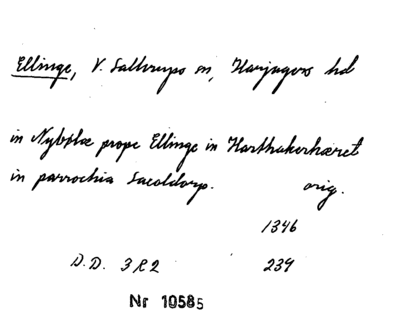 Ellinge, V. Sallerups sn, Harjagers hd
in Nybøle prope Ellinge in Harthakerhæret
in parrochia Saxoldorp. orig.
1346
D.D. 3 R 2 239
Nr 10585